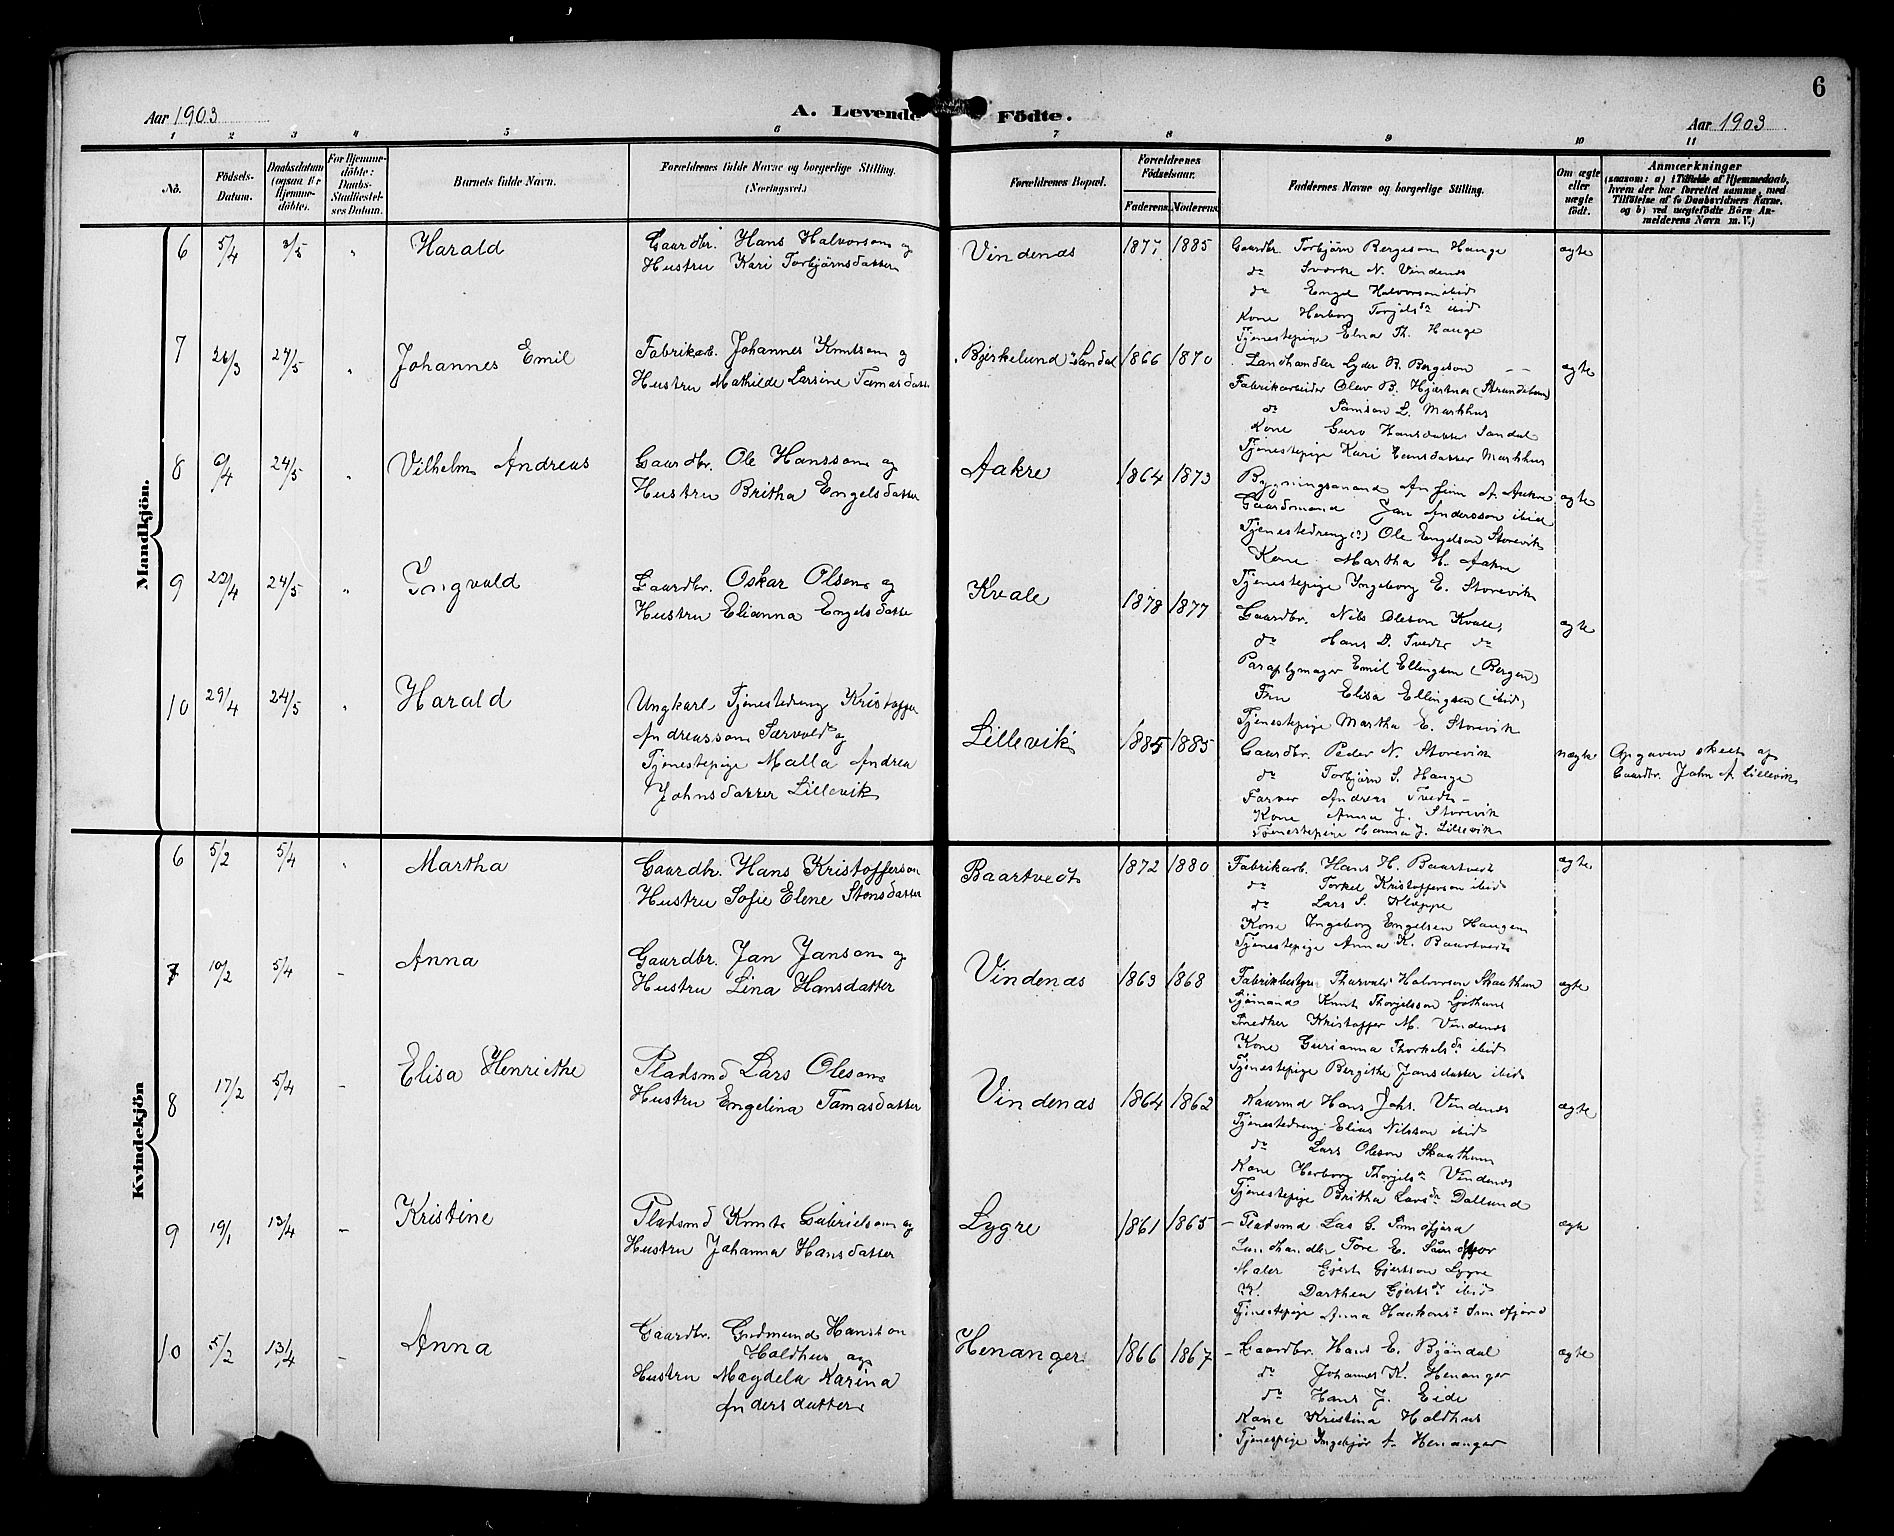 6
Aar 1903
A. Levende Födte.
Aar 1903
1 2 3 4 5 6 7 8 9 10 11
No.
Födsels-Datum.
Daabsdatum (ogsaa for Hjemmedöbte).
For Hjemmedöbte: Daabs-Stadfæstelses Datum.
Barnets fulde Navn.
Forældrenes fulde Navne og borgerlige Stilling.
(Næringsvei.)
Forældrenes Bopæl.
Forældrenes Födselsaar.
Faderens. Moderens.
Faddernes Navne og borgerlige Stilling.
Om ægte eller uægte födt.
Anmærkninger
(saasom: a) i Tilfælde af Hjemmedaab,
hvem der har forrettet samme, med
Tilföielse af to Daabsvidners Navne.
og b) ved uægtefödte Börn An-
melderens Navn m. V.)
Mandkjön.
6 5/4 3/5 " Harald
Gaardbr. Hans Halvorson og
Hustru Kari Torbjørnsdatter
Vindenæs 1877 1885
Gaardbr. Torbjørn Bergeson Hauge
do Sverke N. Vindenes
do Engel Halvorson ibid
Kone Herborg Torjelsdr ibid
Tjenestepige Elna Th. Hauge
ægte
7 26/3 24/5 " Johannes Emil
Fabrikarb. Johannes Knutson og
Hustru Mathilde Larsine Tamasdatter
Bjerkelund Sandal 1866 1870
Landhandler Lyder B. Bergeson
Fabrikarbeider Olav B. Hjartnes (Strandebarm)
do Samson L. Markhus
Kone Guro Hansdatter Sandal
Tjenestepige Kari Hansdatter Markhus
ægte
8 6/4 24/5 " Vilhelm Andreas
Gaardbr. Ole Hansson og
Hustru Britha Engelsdatter
Aakre 1864 1873
Bygningsmand Anfinn A. Aakre
Gaardmand Jan Andersson ibid
Tjenestedreng (?) Ole Engelson Storevik
Kone Martha H. Aakre
Tjenestepige Ingeborg E. Storevik
ægte
9 22/4 24/5 " Ingvald
Gaardbr. Oskar Olson og
Hustru Elianna Engelsdatter
Kvale 1878 1877
Gaardbr. Nils Oleson Kvale
do Hans D. Tvedt do
Paraplymager Emil Ellingsen (Bergen)
Fru Elisa Ellingsen (ibid)
Tjenestepige Martha E. Storevik
ægte
10 29/4 24/5 " Harald
Ungkarl Tjenestedreng Kristoffer
Andreasson Særvold og
Tjenestepige Malla Andrea
Johnsdatter Lillevik
Lillevik 1885 1885
Gaardbr. Peder N. Storevik
do Torbjørn S. Hauge
Farver Andreas Tvedt
Kone Anna J. Storevik
Tjenestepige Hanna J. Lillevik
uægte
Opgaven skeet af
Gaardbr. John A. Lillevik
Kvindekjön
6 5/2 5/4 " Martha
Gaardbr. Hans Kristofferson
Hustru Sofie Elene Stensdatter
Baartvedt 1872 1880
Fabrikarb. Hans H. Baartvedt
do Torkel Kristofferson ibid
do Lars S. Kleppe
Kone Ingeborg Engelsen Haugen
Tjenestepige Anna K. Baartvedt
ægte
7 10/2 5/4 - Anna
Gaardbr. Jan Janson og
Hustru Lina Hansdatter
Vindenæs 1863 1868
Fabrikbestyrer Thorvald Halvorson Skaathun
Sjømand Knut Thorjelsson
Snedker Kristoffer M. Vindenes
Kone Gurianna Thorkelsdr ibid
Tjenestepige Bergithe Jansdatter ibid
ægte
8 17/2 5/4 - Elisa Henriette
Pladsmd Lars Oleson
Hustru Engelina Tamasdatter
Vindenæs 1864 1862
Kaarmd Hans Johs. Vindenes
Tjenestedreng Elias Nilsson ibid
do Lars Oleson Skaathun
Kone Herborg Thorjelsdr Vindenes
Tjenestepige Britha Larsdr Dalland
ægte
9 19/1 13/4 - Kristine
Pladsmd Knut Gabrielson og
Hustru Johanna Hansdatter
Lygre 1861 1865
Pladsmd Las G.
Landhandler Tore E.
Maler Gjert Gjertson Lygre
K. Dorthea Gjertsdr ibid
Tjenestepige Anna
ægte
10 5/2 13/4 - Anna
Gaardbr. Gudmund Hansson
Holdhus og
Hustru Magdela Karina
Andersdatter
Henanger 1866 1867
Gaardbr. Hans E. Bjøndal
do Johannes K. Henanger
do Hans J. Eide
Kone Kristina Holdhus
Tjenestepige Ingebjør A. Henanger
ægte